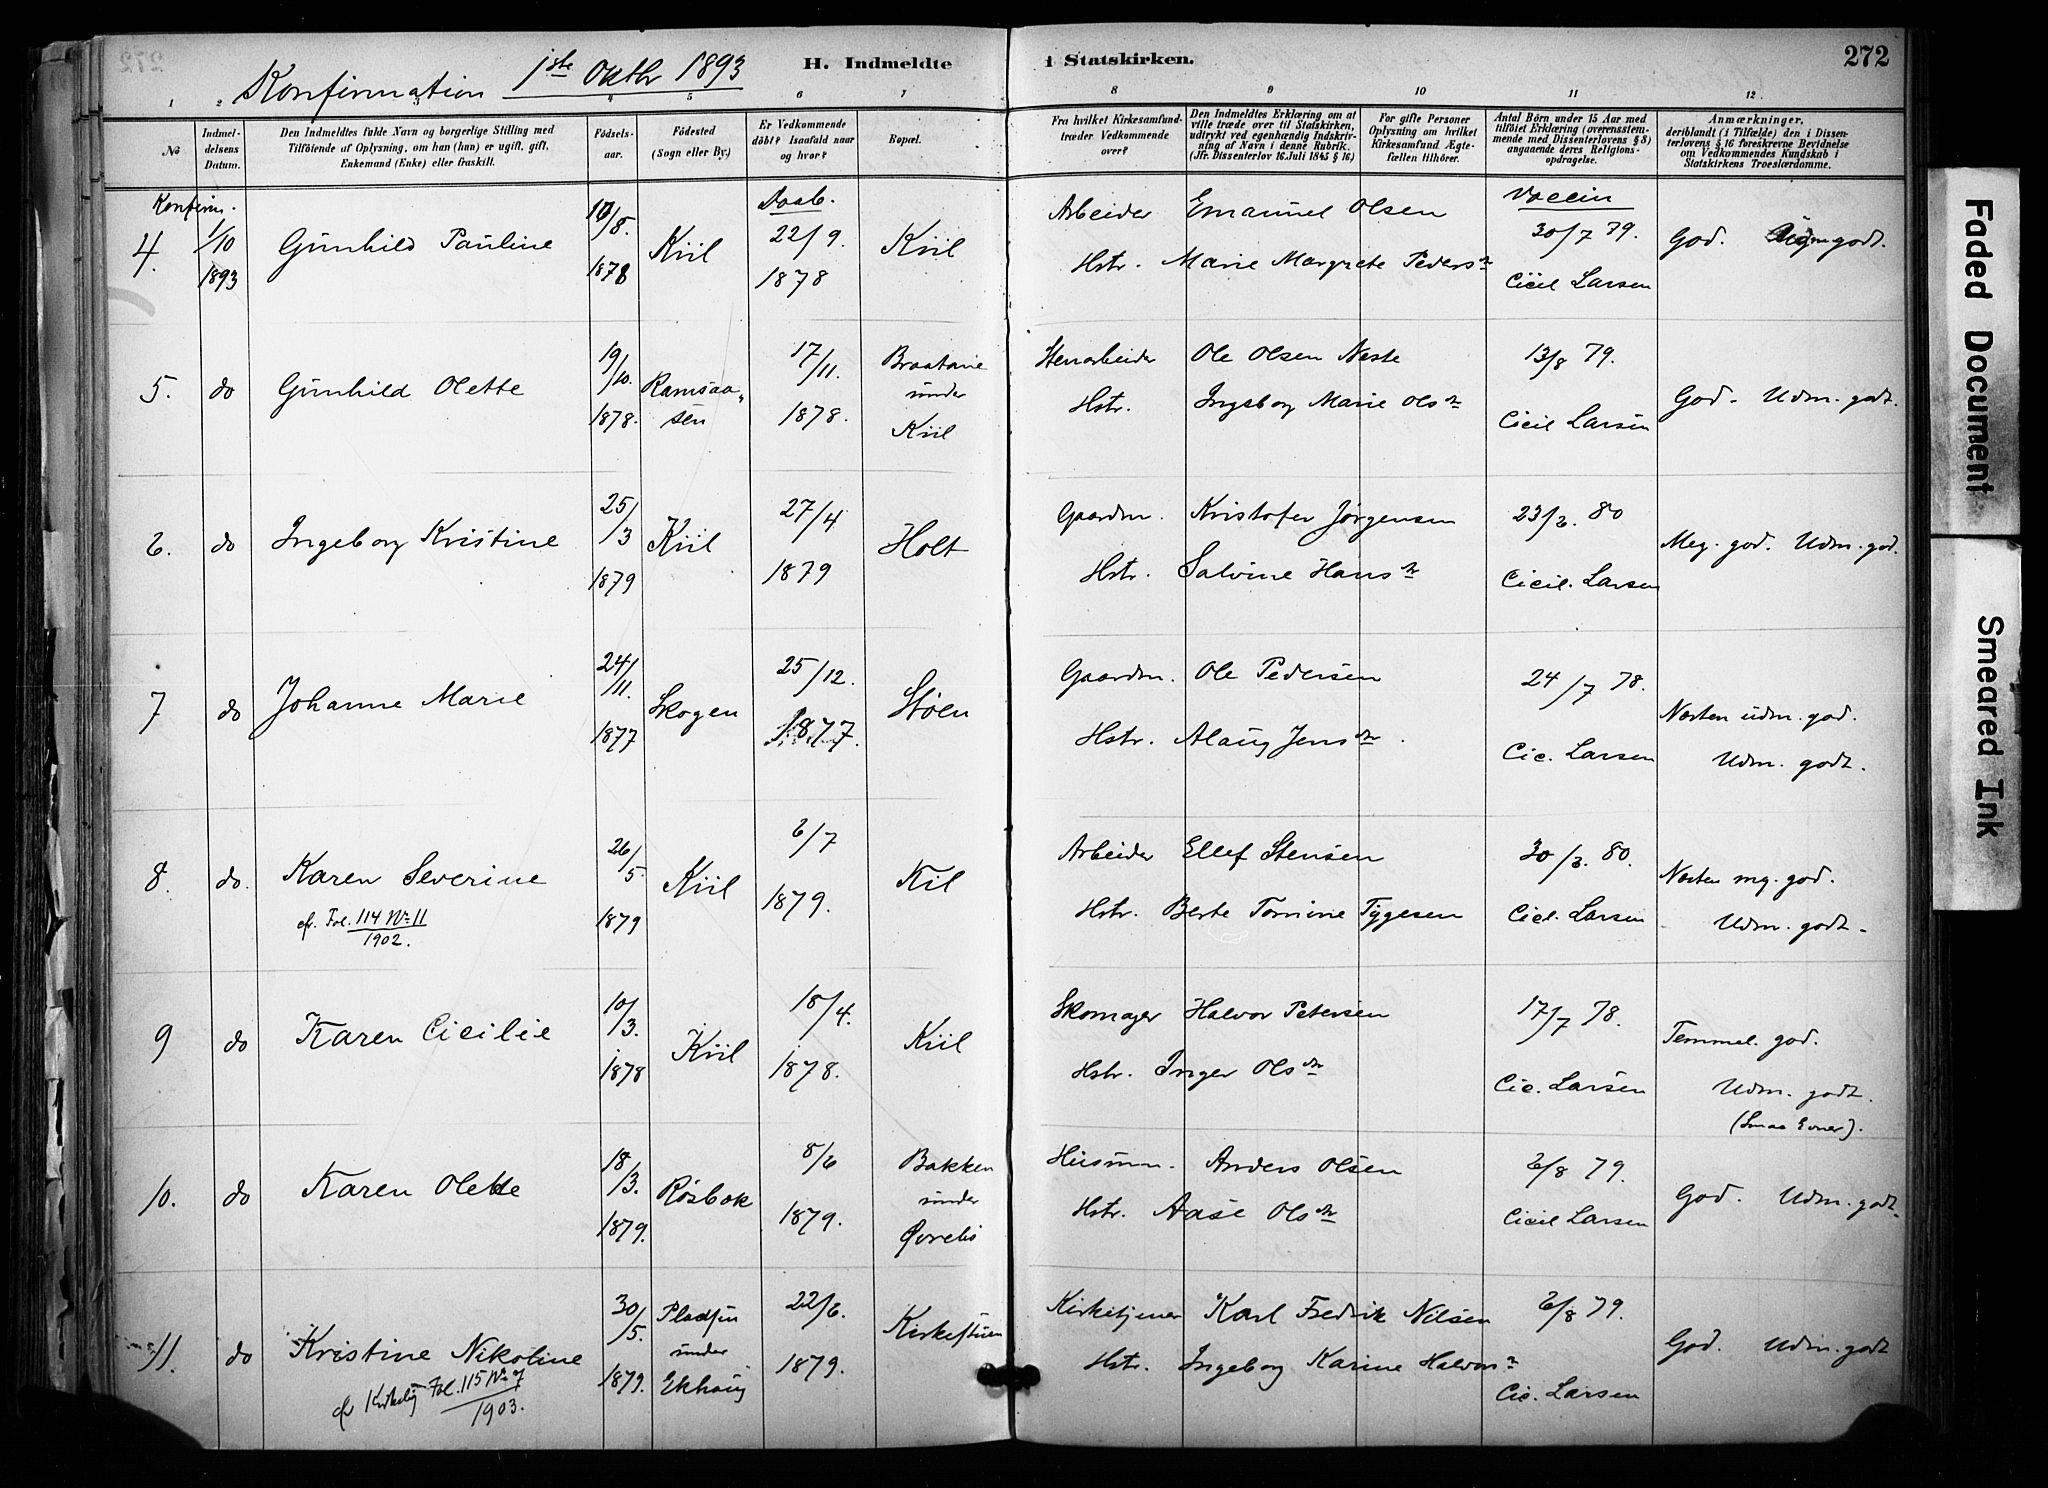 272
Konfirmation 1ste Oktbr 1893
H. Indmeldte i Statskirken.
1 2 3 4 5 6 7 8 9 10 11 12.
No
Indmeldelsens Datum.
Den Indmeldtes fulde Navn og borgerlige Stilling med
Tilføiende af Oplysning, om han (hun) er ugift, gift,
Enkemand (Enke) eller fraskilt.
Födselsaar.
Födested
(Sogn eller By.)
Er Vedkommende
döbt? Isaafald naar
og hvor?
Bopæl.
Fra hvilket Kirkesamfund
træder Vedkommende
over?
Den Indmeldtes Erklæring om at
ville træde over til Statskirken,
udtrykt ved egenhændig Indskrivning af Navn i denne Rubrik.
(Jfr. Dissenterlov 16. Juli 1845 § 16)
For gifte Personer
Oplysning om hvilket
Kirkesamfund Ægtefællen tilhörer.
Antal Börn under 15 Aar med
tilföiet Erklæring (overensstemmende med Dissenterlovens § 8)
angaaende deres Religionsopdragelse.
Anmærkninger,
deriblandt (i Tilfælde) den i Dissenterlovens § 16 foreskrevne Bevidnelse
om Vedkommendes Kundskab i
Statskirkens Troeslærdomme.
Konfirm. Daab. Vaccin
4. 1/10 1893 Gunhild Pauline 10/8. 1878 Kiil 22/9. 1878 Kiil
Arbeider Emanuel Olsen 30/7 79. God. Udm godt.
Hstr. Marie Margrete Pedersdr Cicil Larsen
5. do Gunhild Olette 19/10. 1878. Ramsaasen 17/11. 1878. Braatane under Kiil
Stenarbeider Ole Olsen Neste 13/8 79. God. Udm. godt.
Hstr. Ingeborg Marie Olsdr Cicil Larsen
6. do Ingeborg Kristine 25/3 1879 Kiil 27/4 1879 Holt
Gaardm. Kristofer Jørgensen 23/6. 80 Meg. god. Udm. god.
Hstr. Salvine Hansdr Cicil. Larsen
7 do Johanne Marie 24/11. 1877 Skogen 25/12. 1877. Støen
Gaardm. Ole Pedersen 24/7 78. Næsten udm. god.
Hstr. Alaug Jensdr. Cic. Larsen Udm. godt.
8. do. Karen Severine 26/5. 1879 Kiil 6/7 1879. Kil
cfr. Fol. 114 No 11 1902.
Arbeider Ellef Stensen 30/6. 80. Næsten mg. god.
Hstr. Berte Tomine Tygesen Cicl. Larsen Udm. godt.
9 do Karen Cicilie 10/3. 1878 Kiil 18/4. 1878. Kiil
Skomager Halvor Petersen 17/7 78. Temmel. god.
Hstr. Inger Olsdr Cic. Larsen Udm. godt.
(Smaa Evner).
10. do Karen Olette 18/3. 1879. Røsbak 8/6 1879. Bakken under Øvrebø
Husmn. Anders Olsen 6/8 79. God. Udm. godt.
Hstr. Aase Olsdr Cicil Larsen
11. do Kristine Nikoline 30/5. 1879. Pladsen under Ekhaug 22/6. 1879. Kirkestuen
cfr Kirkelig Fol. 115 No 7 1903.
Kirketjener Karl Fredrik Nilsen 6/8 79. God. Udm. godt
Hstr. Ingeborg Karine Halvorsdr Cic. Larsen
Faded Document
Smeared Ink